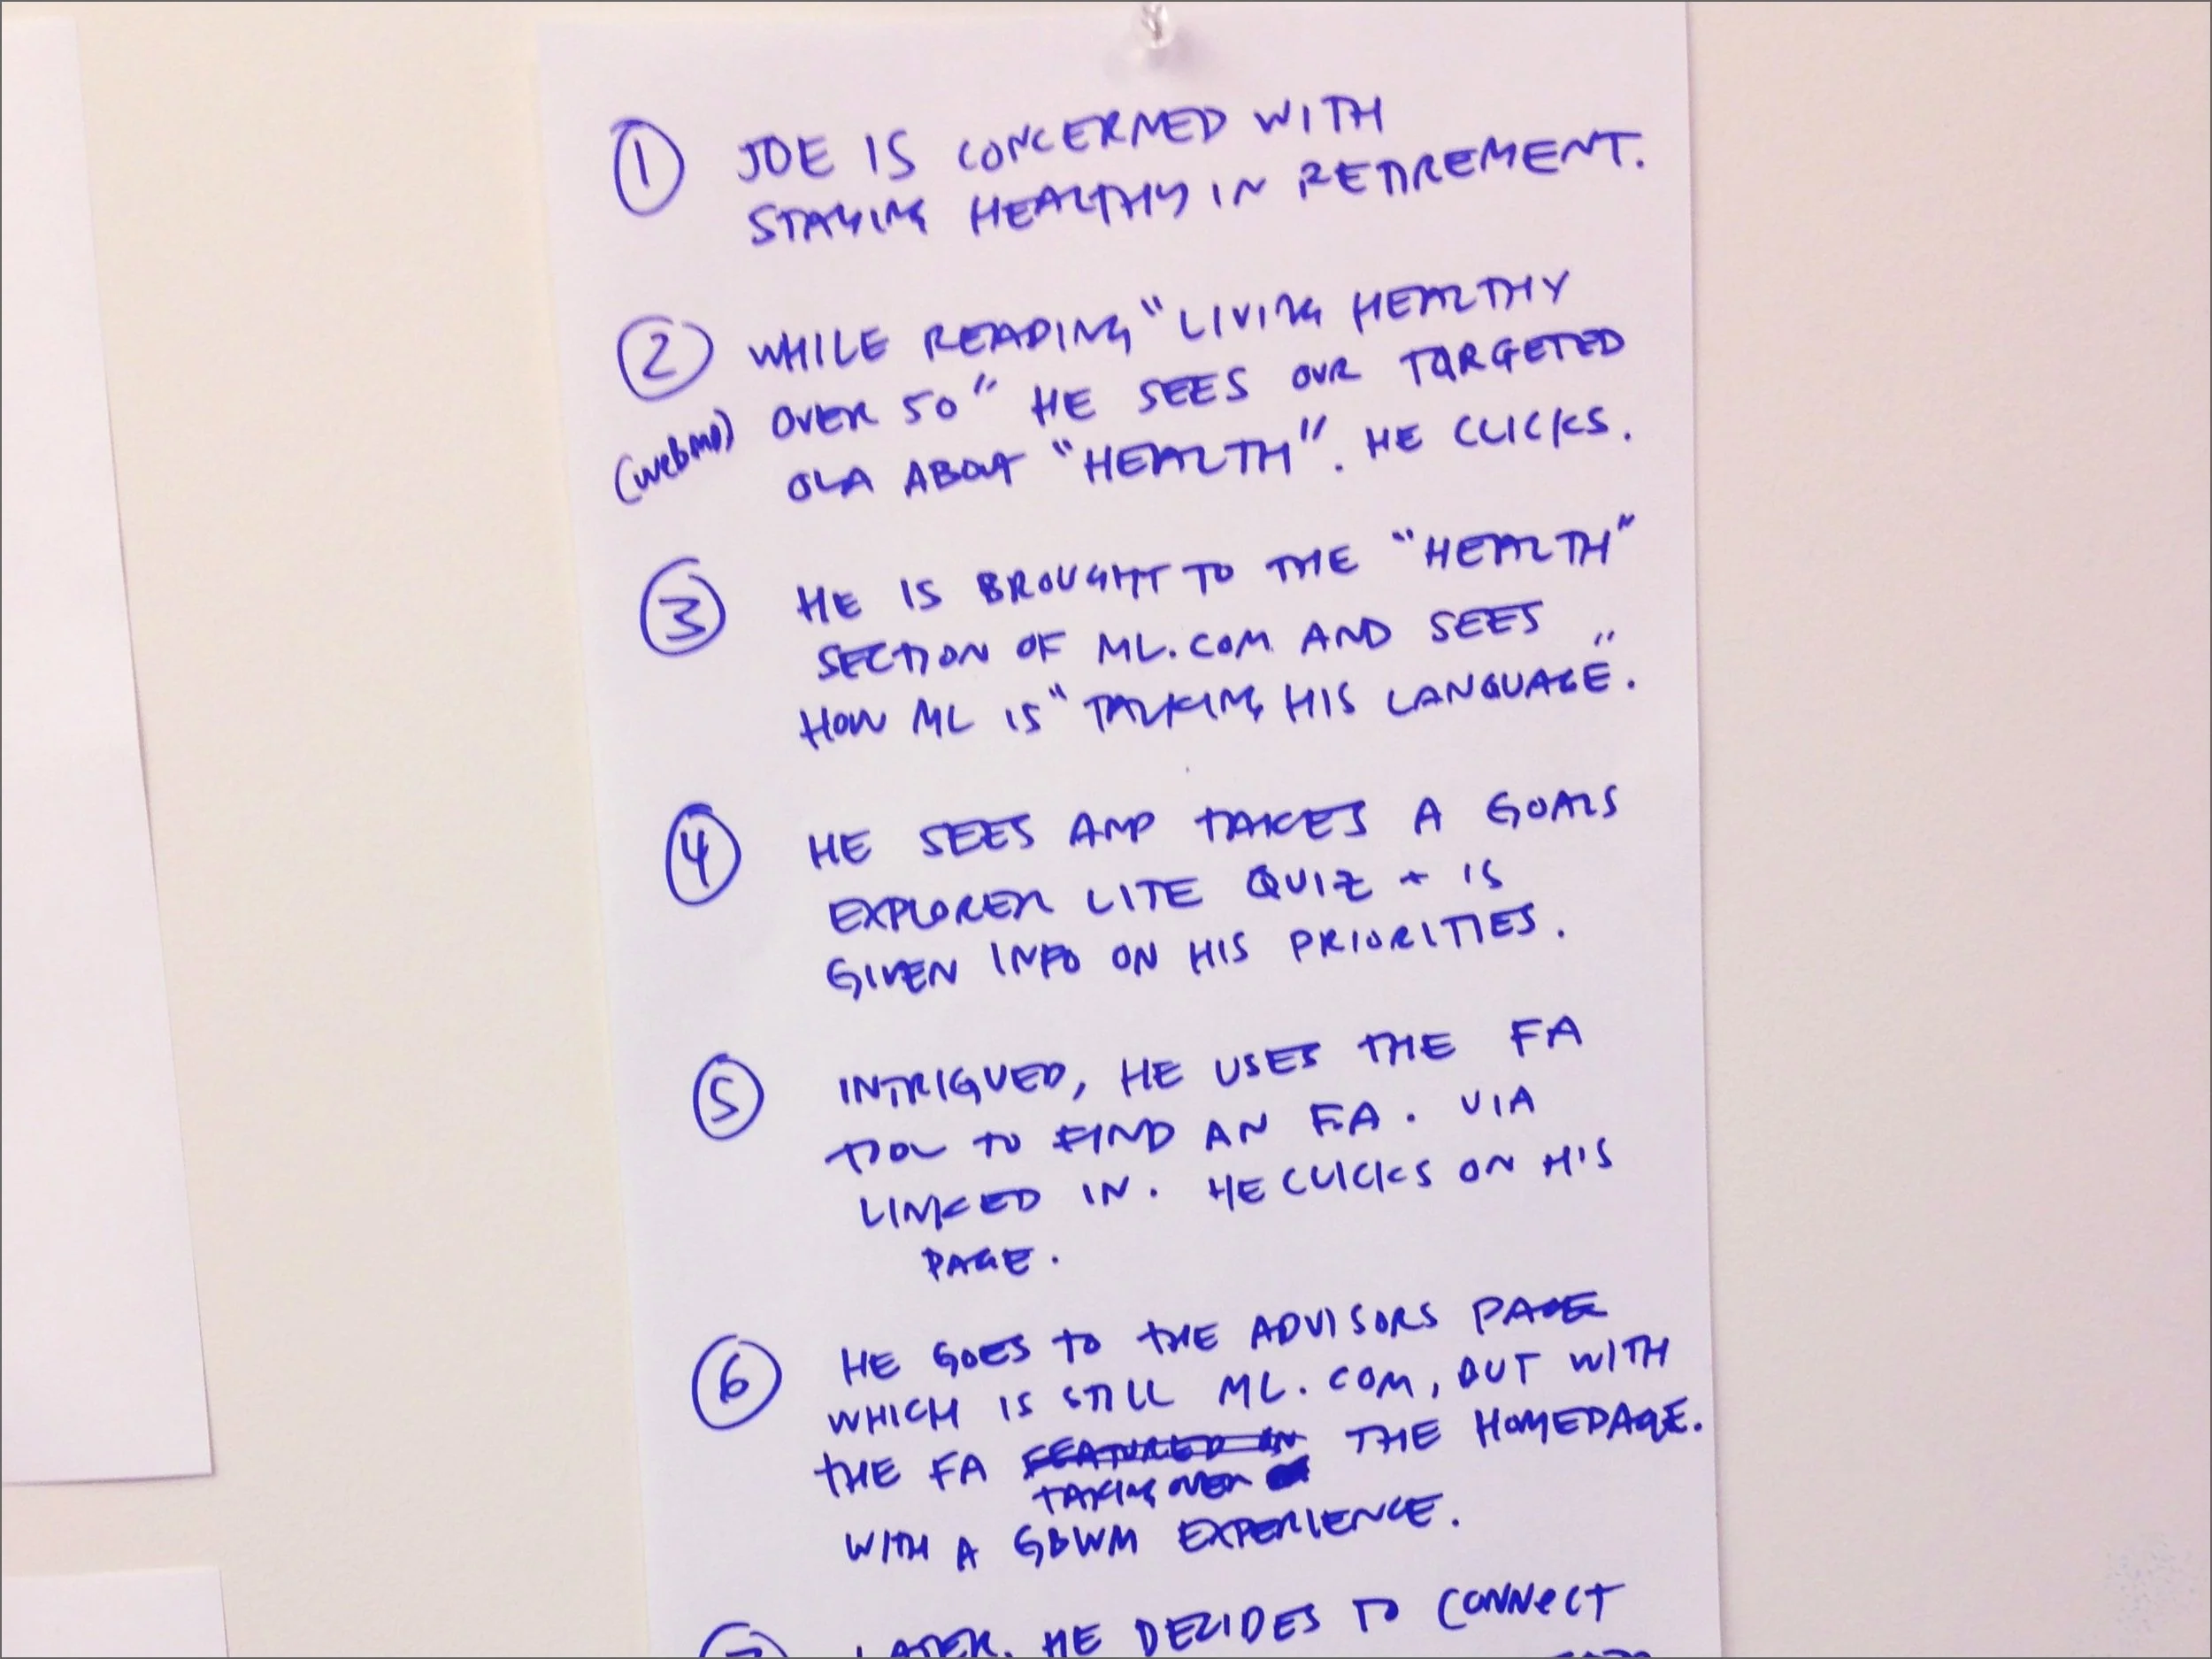 ① JOE IS CONCERNED WITH
STAYING HEALTHY IN RETIREMENT.
② WHILE READING "LIVING HEALTHY
(WebMD) OVER 50" HE SEES OUR TARGETED
OLA ABOUT "HEALTH". HE CLICKS.
③ HE IS BROUGHT TO THE "HEALTH"
SECTION OF ML.COM AND SEES
HOW ML IS "TALKING HIS LANGUAGE".
④ HE SEES AND TAKES A GOALS
EXPLORER LITE QUIZ + IS
GIVEN INFO ON HIS PRIORITIES.
⑤ INTRIGUED, HE USES THE FA
TOOL TO FIND AN FA. VIA
LINKED IN. HE CLICKS ON HIS
PAGE.
⑥ HE GOES TO THE ADVISORS PAGE
WHICH IS STILL ML.COM, BUT WITH
THE FA FEATURED IN THE HOMEPAGE.
TAKING OVER
WITH A GBWM EXPERIENCE.
⑦ LATER, HE DECIDES TO CONNECT